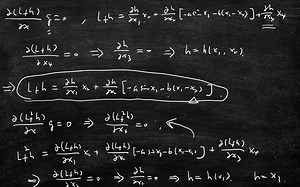 ∂(L_f h)/∂x g = 0 , L_f h = ∂h/∂x₁ x₂ + ∂h/∂x₂ [-a sin x₁ - b(x₁-x₃)] + ∂h/∂x₃ x₄
∂(L_f h)/∂x₄ = 0 ⇒ ∂h/∂x₃ = 0 ⇒ h = h(x₁, x₂)
⇒ L_f h = ∂h/∂x₁ x₂ + ∂h/∂x₂ [-a sin x₁ - b(x₁-x₃)]
∂(L_f² h)/∂x g = 0 ⇒ ∂(L_f² h)/∂x₄ = 0
L_f² h = ∂(L_f h)/∂x₁ x₂ + ∂(L_f h)/∂x₂ [-a sin x₁ - b(x₁-x₃)] + ∂(L_f h)/∂x₃ x₄
⇒ ∂(L_f h)/∂x₃ = 0 ⇒ ∂h/∂x₂ = 0 ⇒ h = h(x₁) h = x₁